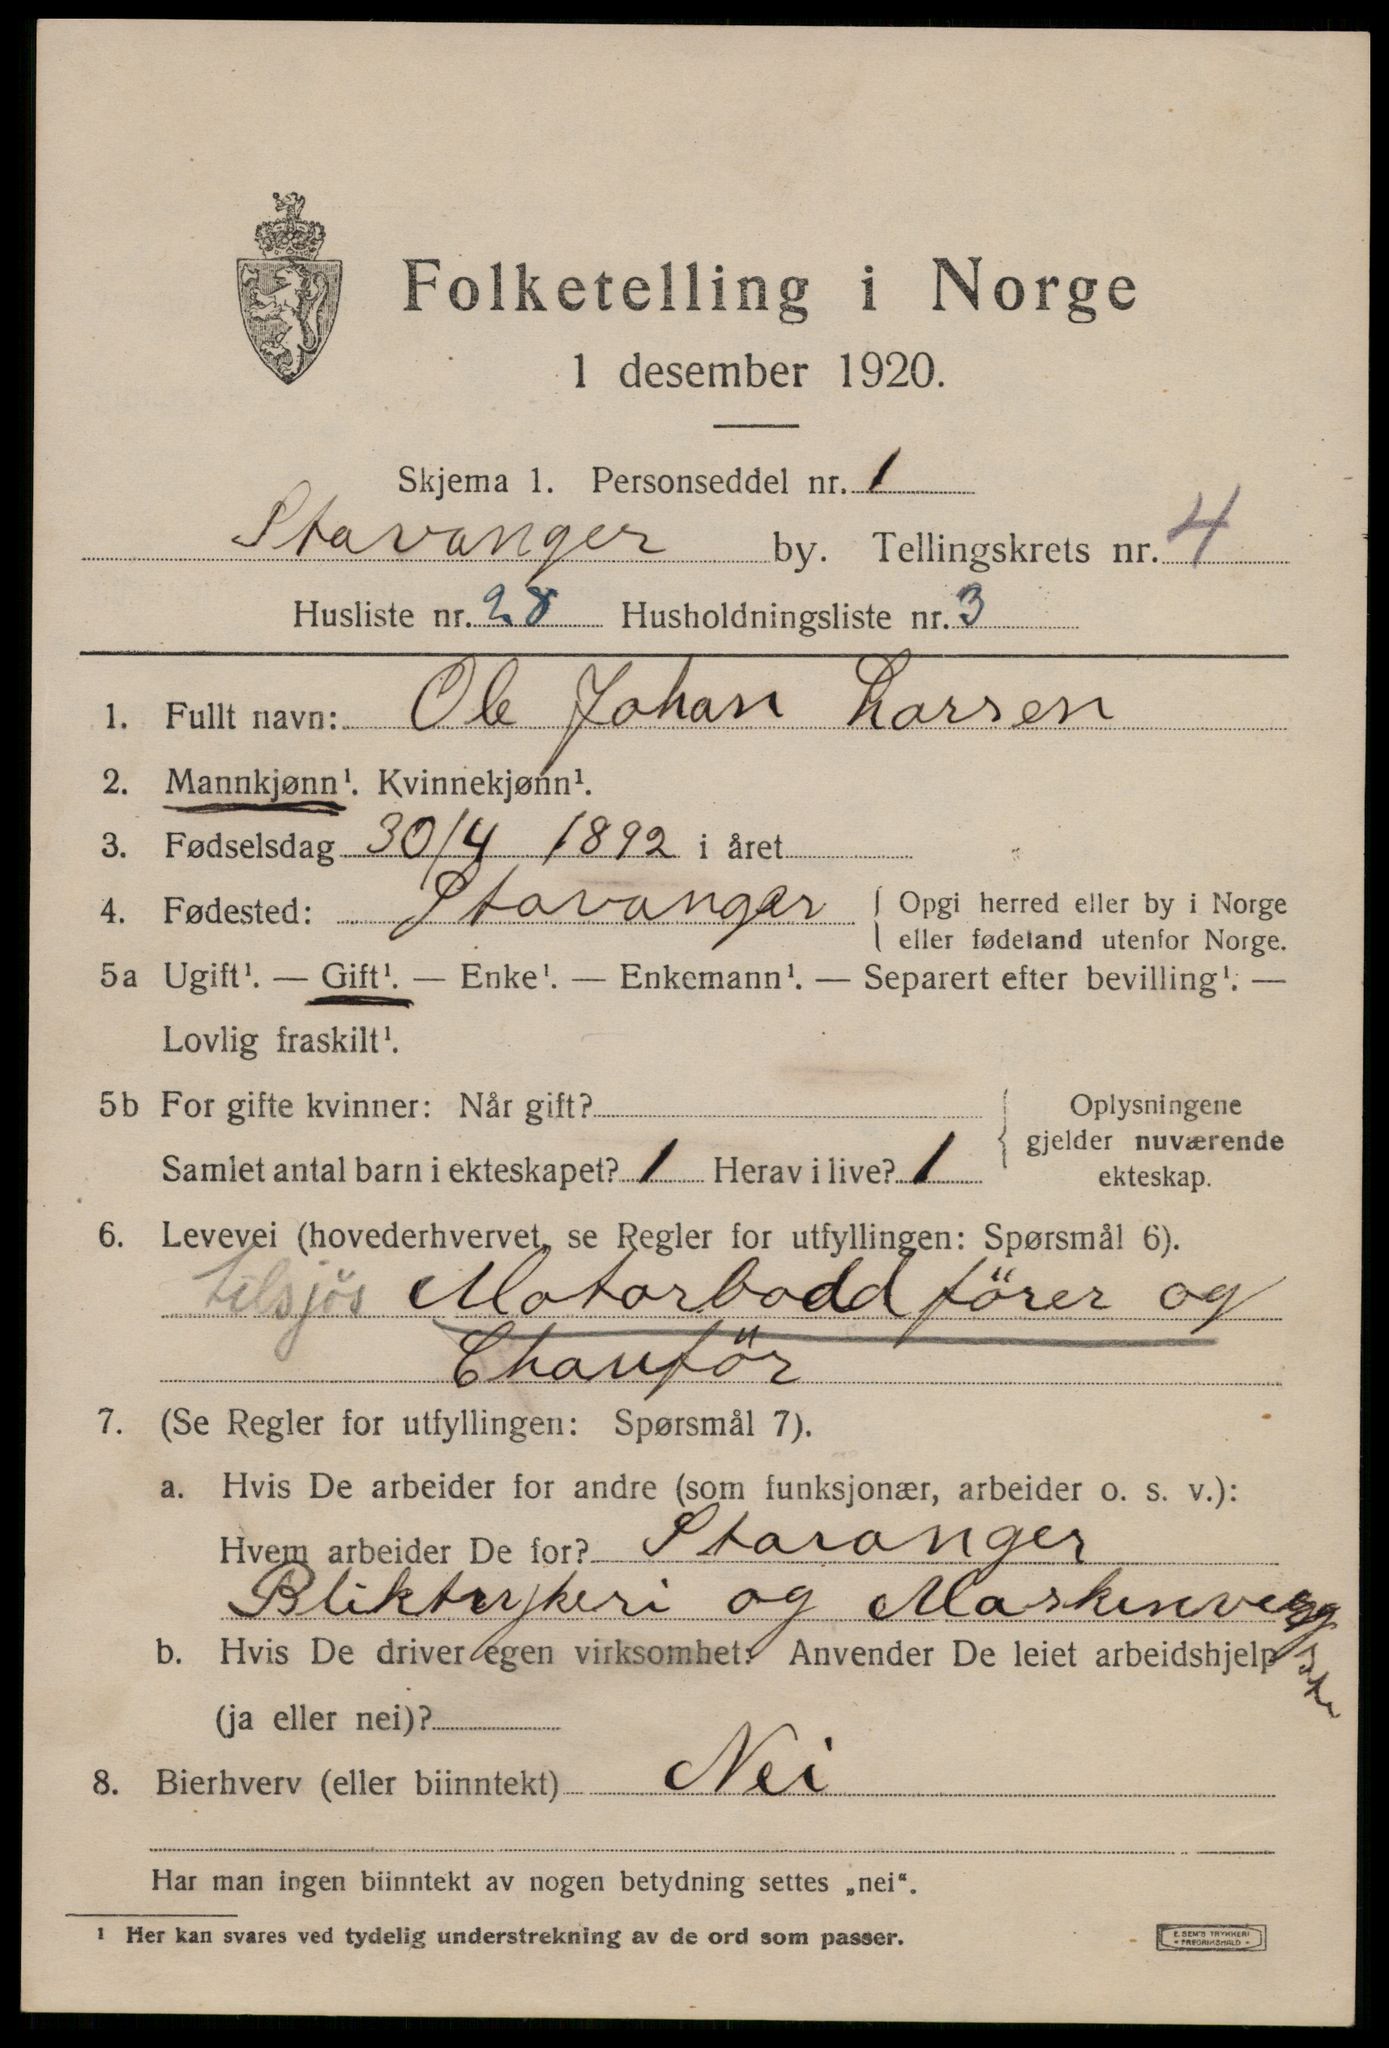 Folketelling i Norge
1 desember 1920.
Skjema 1. Personseddel nr. 1
Stavanger by. Tellingskrets nr. 4
Husliste nr. 28 Husholdningsliste nr. 3
1. Fullt navn: Ole Johan Larsen
2. Mannkjønn¹. Kvinnekjønn¹.
3. Fødselsdag 30/4 1892 i året
4. Fødested: Stavanger { Opgi herred eller by i Norge
eller fødeland utenfor Norge.
5a Ugift¹. — Gift¹. — Enke¹. — Enkemann¹. — Separert efter bevilling¹. —
Lovlig fraskilt¹.
5b For gifte kvinner: Når gift?
Samlet antal barn i ekteskapet? 1 Herav i live? 1
Oplysningene
gjelder nuværende
ekteskap.
6. Levevei (hovederhvervet, se Regler for utfyllingen: Spørsmål 6).
tilsjös Motorbaadförer og
Chauför
7. (Se Regler for utfyllingen: Spørsmål 7).
a. Hvis De arbeider for andre (som funksjonær, arbeider o. s. v.):
Hvem arbeider De for? Stavanger
Bliktrykeri og
b. Hvis De driver egen virksomhet: Anvender De leiet arbeidshjelp
(ja eller nei)?
8. Bierhverv (eller biinntekt) Nei
Har man ingen biinntekt av nogen betydning settes „nei“.
¹ Her kan svares ved tydelig understrekning av de ord som passer.
E. SEM'S TRYKKERI
FREDRIKSHALD